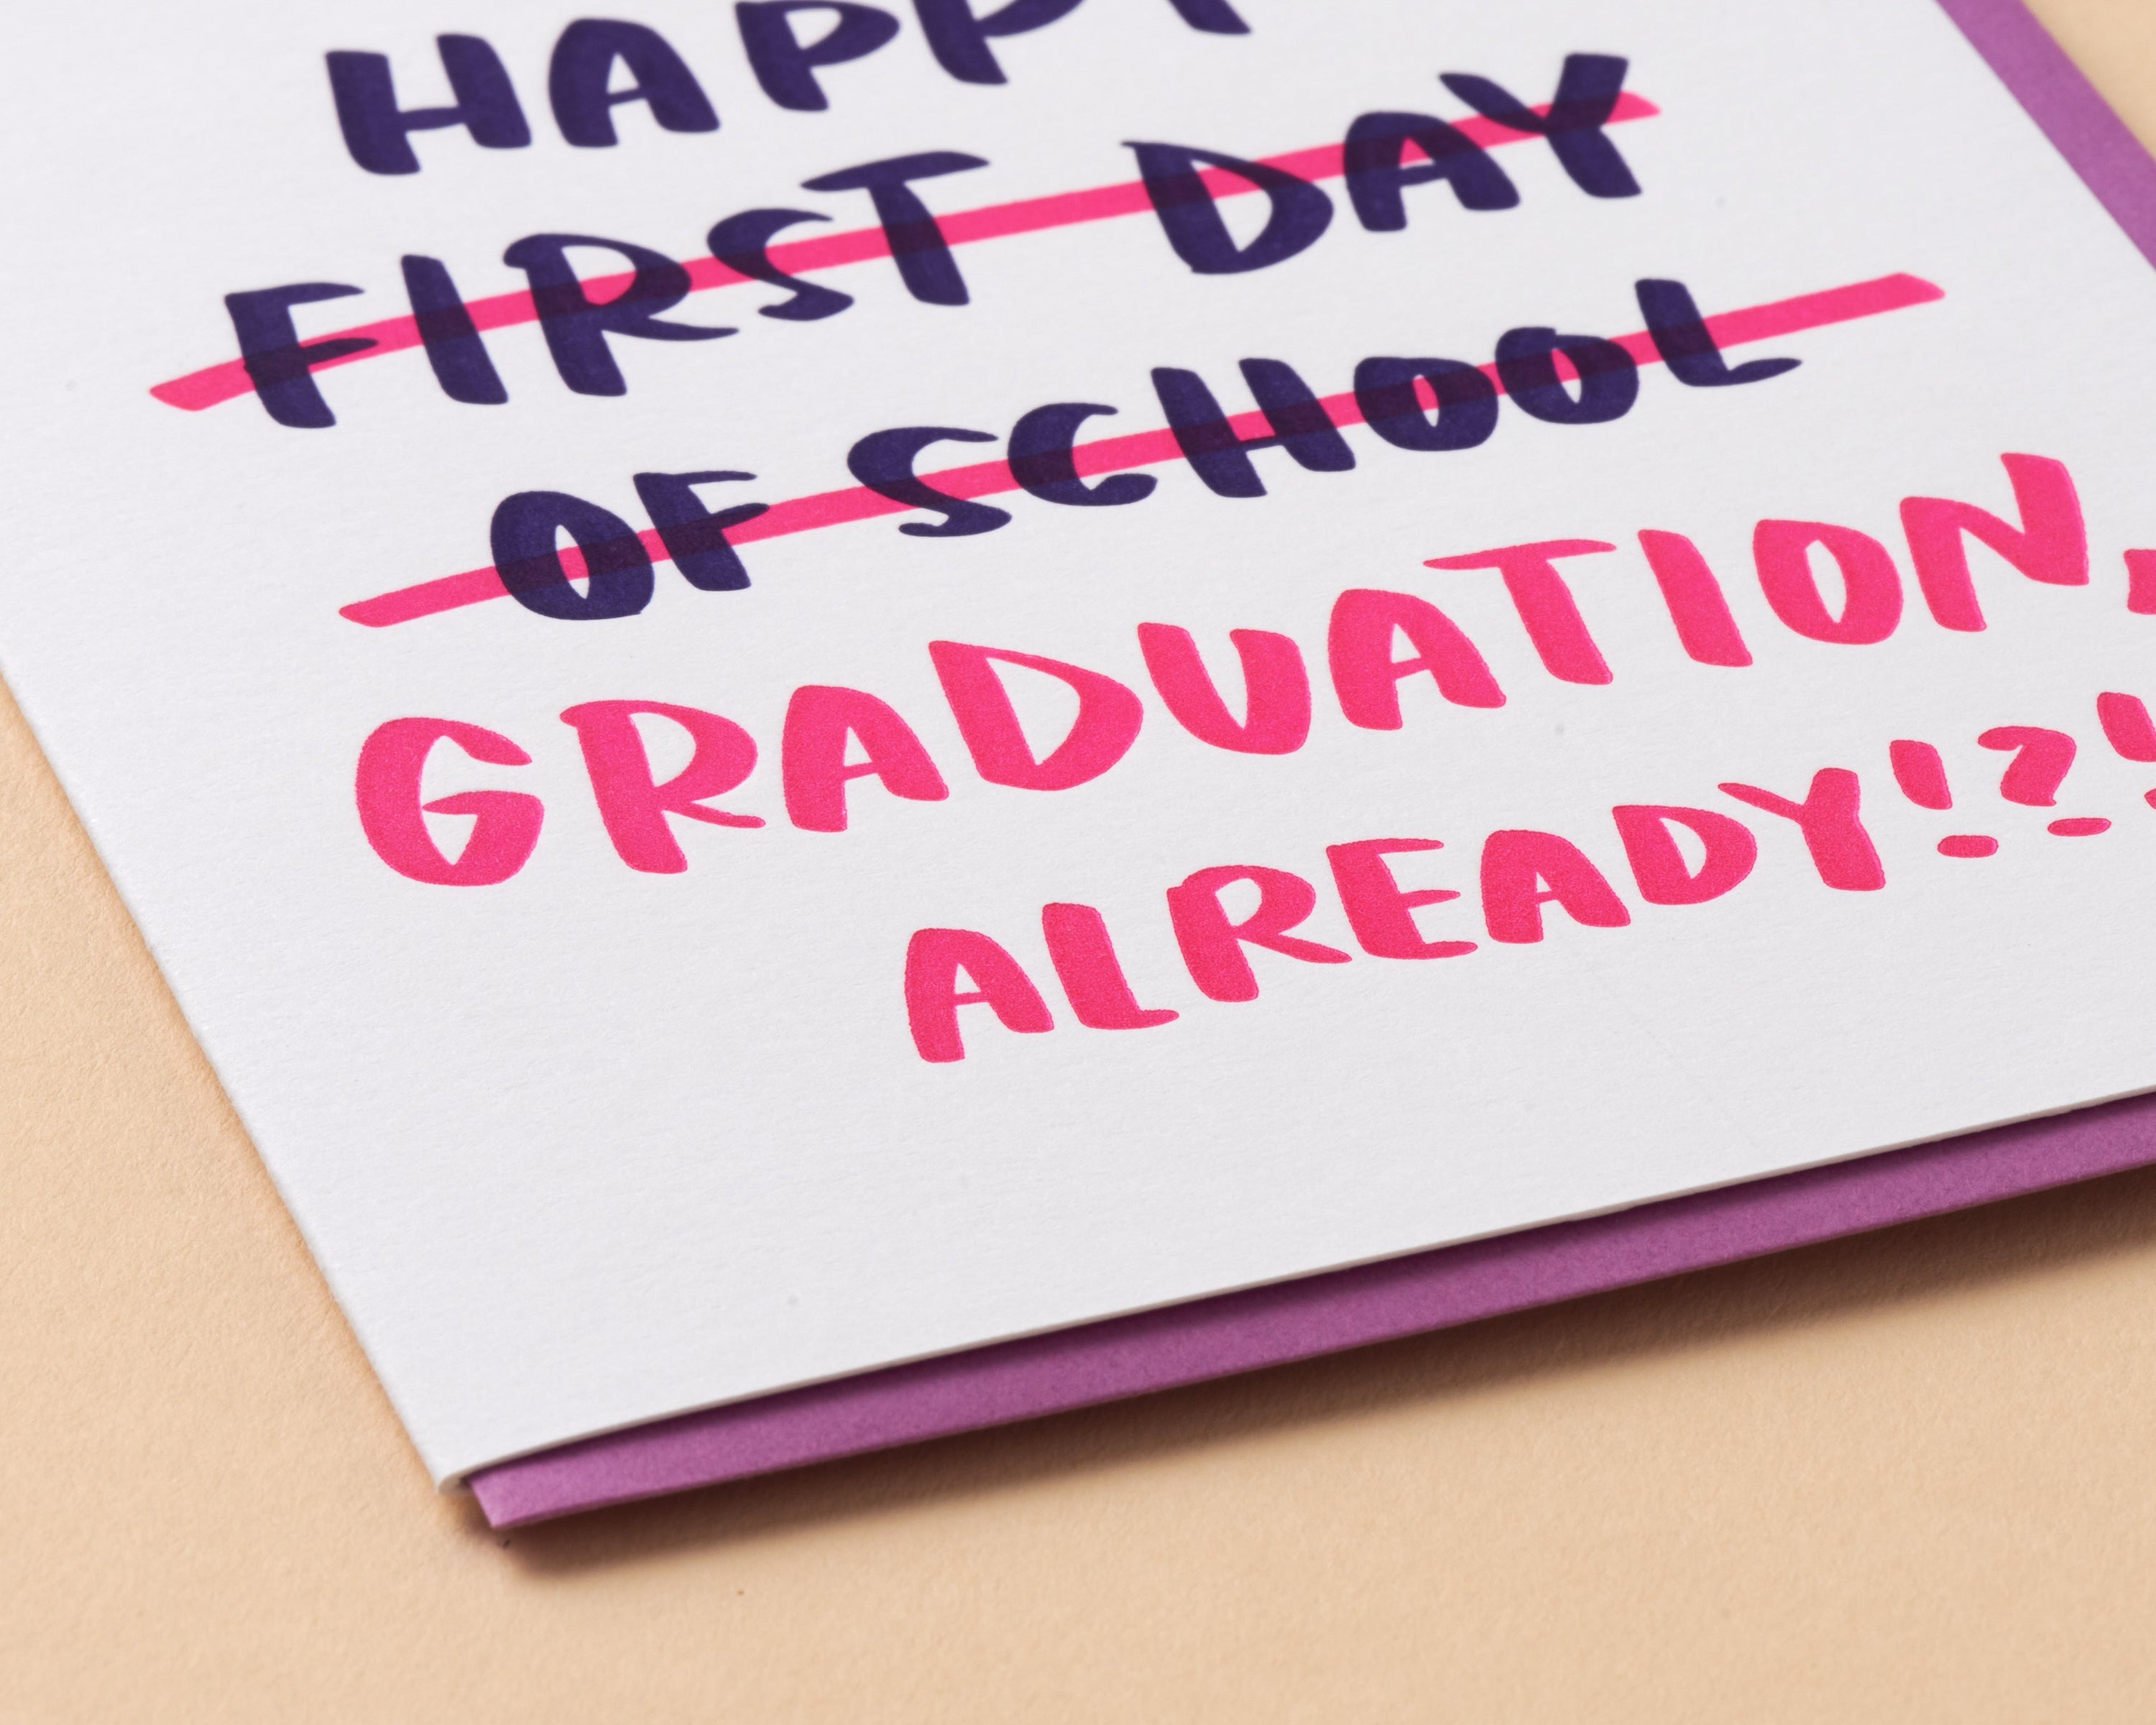 HAPPY
FIRST DAY
OF SCHOOL
GRADUATION,
ALREADY!?!